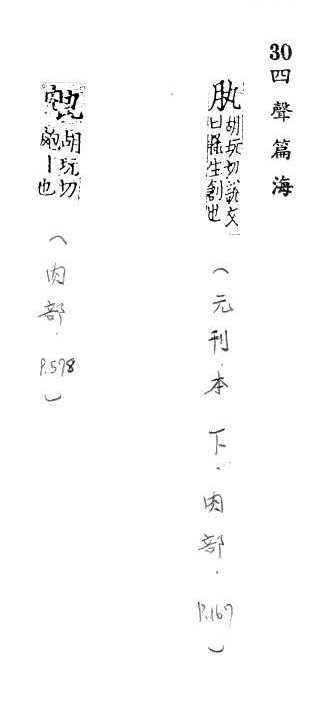 30四聲篇海
肒胡玩切說文
曰搔生創也
(元刊本 下.肉部.P.167)
胡玩切
丨也
(肉部.P.578)